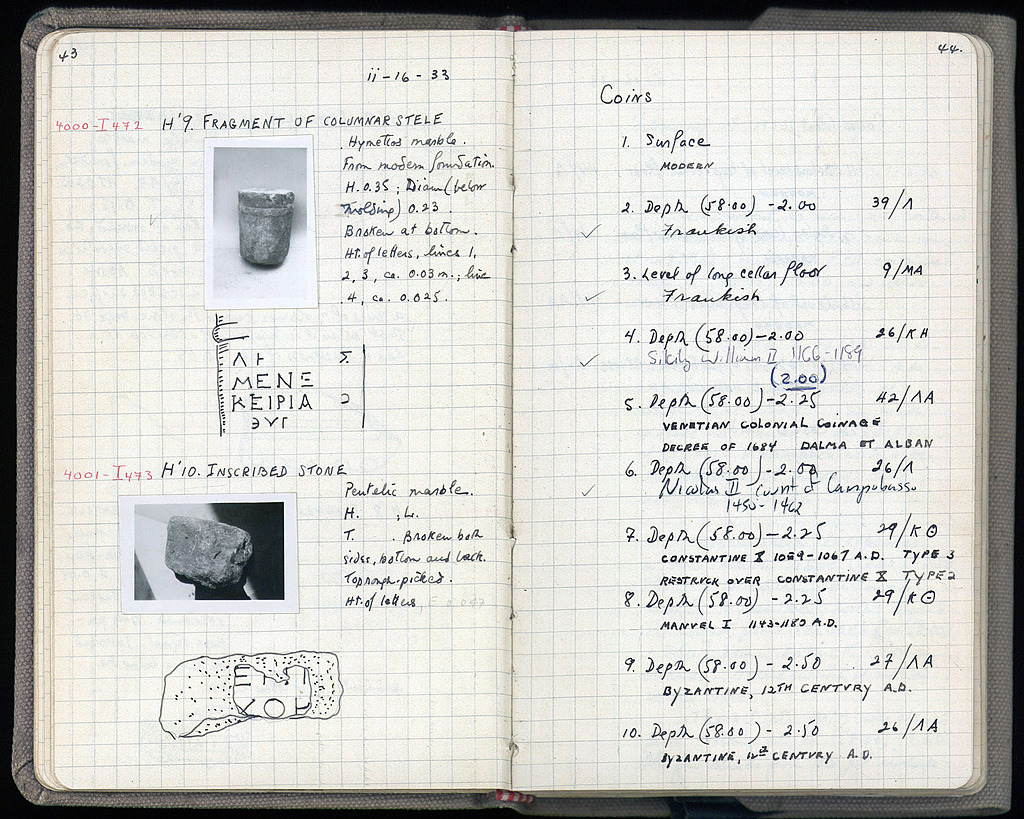 43
ii-16-33
4000-I472 H'9. FRAGMENT OF COLUMNAR STELE
Hymettos marble.
From modern foundation.
H. 0.35 ; Diam (below
molding) 0.23.
Broken at bottom.
Ht. of letters, lines 1,
2, 3, ca. 0.03 m.; line
4, ca. 0.025.
ΜΕΝΕ
ΚΕΙΡΙΑ
4001-I473 H'10. INSCRIBED STONE
Pentelic marble.
H. ; L.
T. . Broken both
sides, bottom and back.
Top rough-picked.
Ht. of letters, 0.047
44.
Coins
1. Surface
MODERN
2. Depth (58.00) -2.00 39/Λ
✓ Frankish
3. Level of long cellar floor 9/ΜΑ
✓ Frankish
4. Depth (58.00) -2.00 26/ΚΗ
✓ Sicily William II 1166-1189
(2.00)
5. Depth (58.00) -2.25 42/ΛΑ
VENETIAN COLONIAL COINAGE
DECREE OF 1684 DALMA ET ALBAN
6. Depth (58.00) -2.00 26/Λ
✓ Nicolas II Count of Campobasso
1450-1462
7. Depth (58.00) -2.25 29/ΚΘ
CONSTANTINE X 1059-1067 A.D. TYPE 3
RESTRUCK OVER CONSTANTINE X TYPE 2
8. Depth (58.00) -2.25 29/ΚΘ
MANUEL I 1143-1180 A.D.
9. Depth (58.00) - 2.50 27/ΛΑ
BYZANTINE, 12TH CENTURY A.D.
10. Depth (58.00) - 2.50 26/ΛΑ
BYZANTINE, 12th CENTURY A.D.